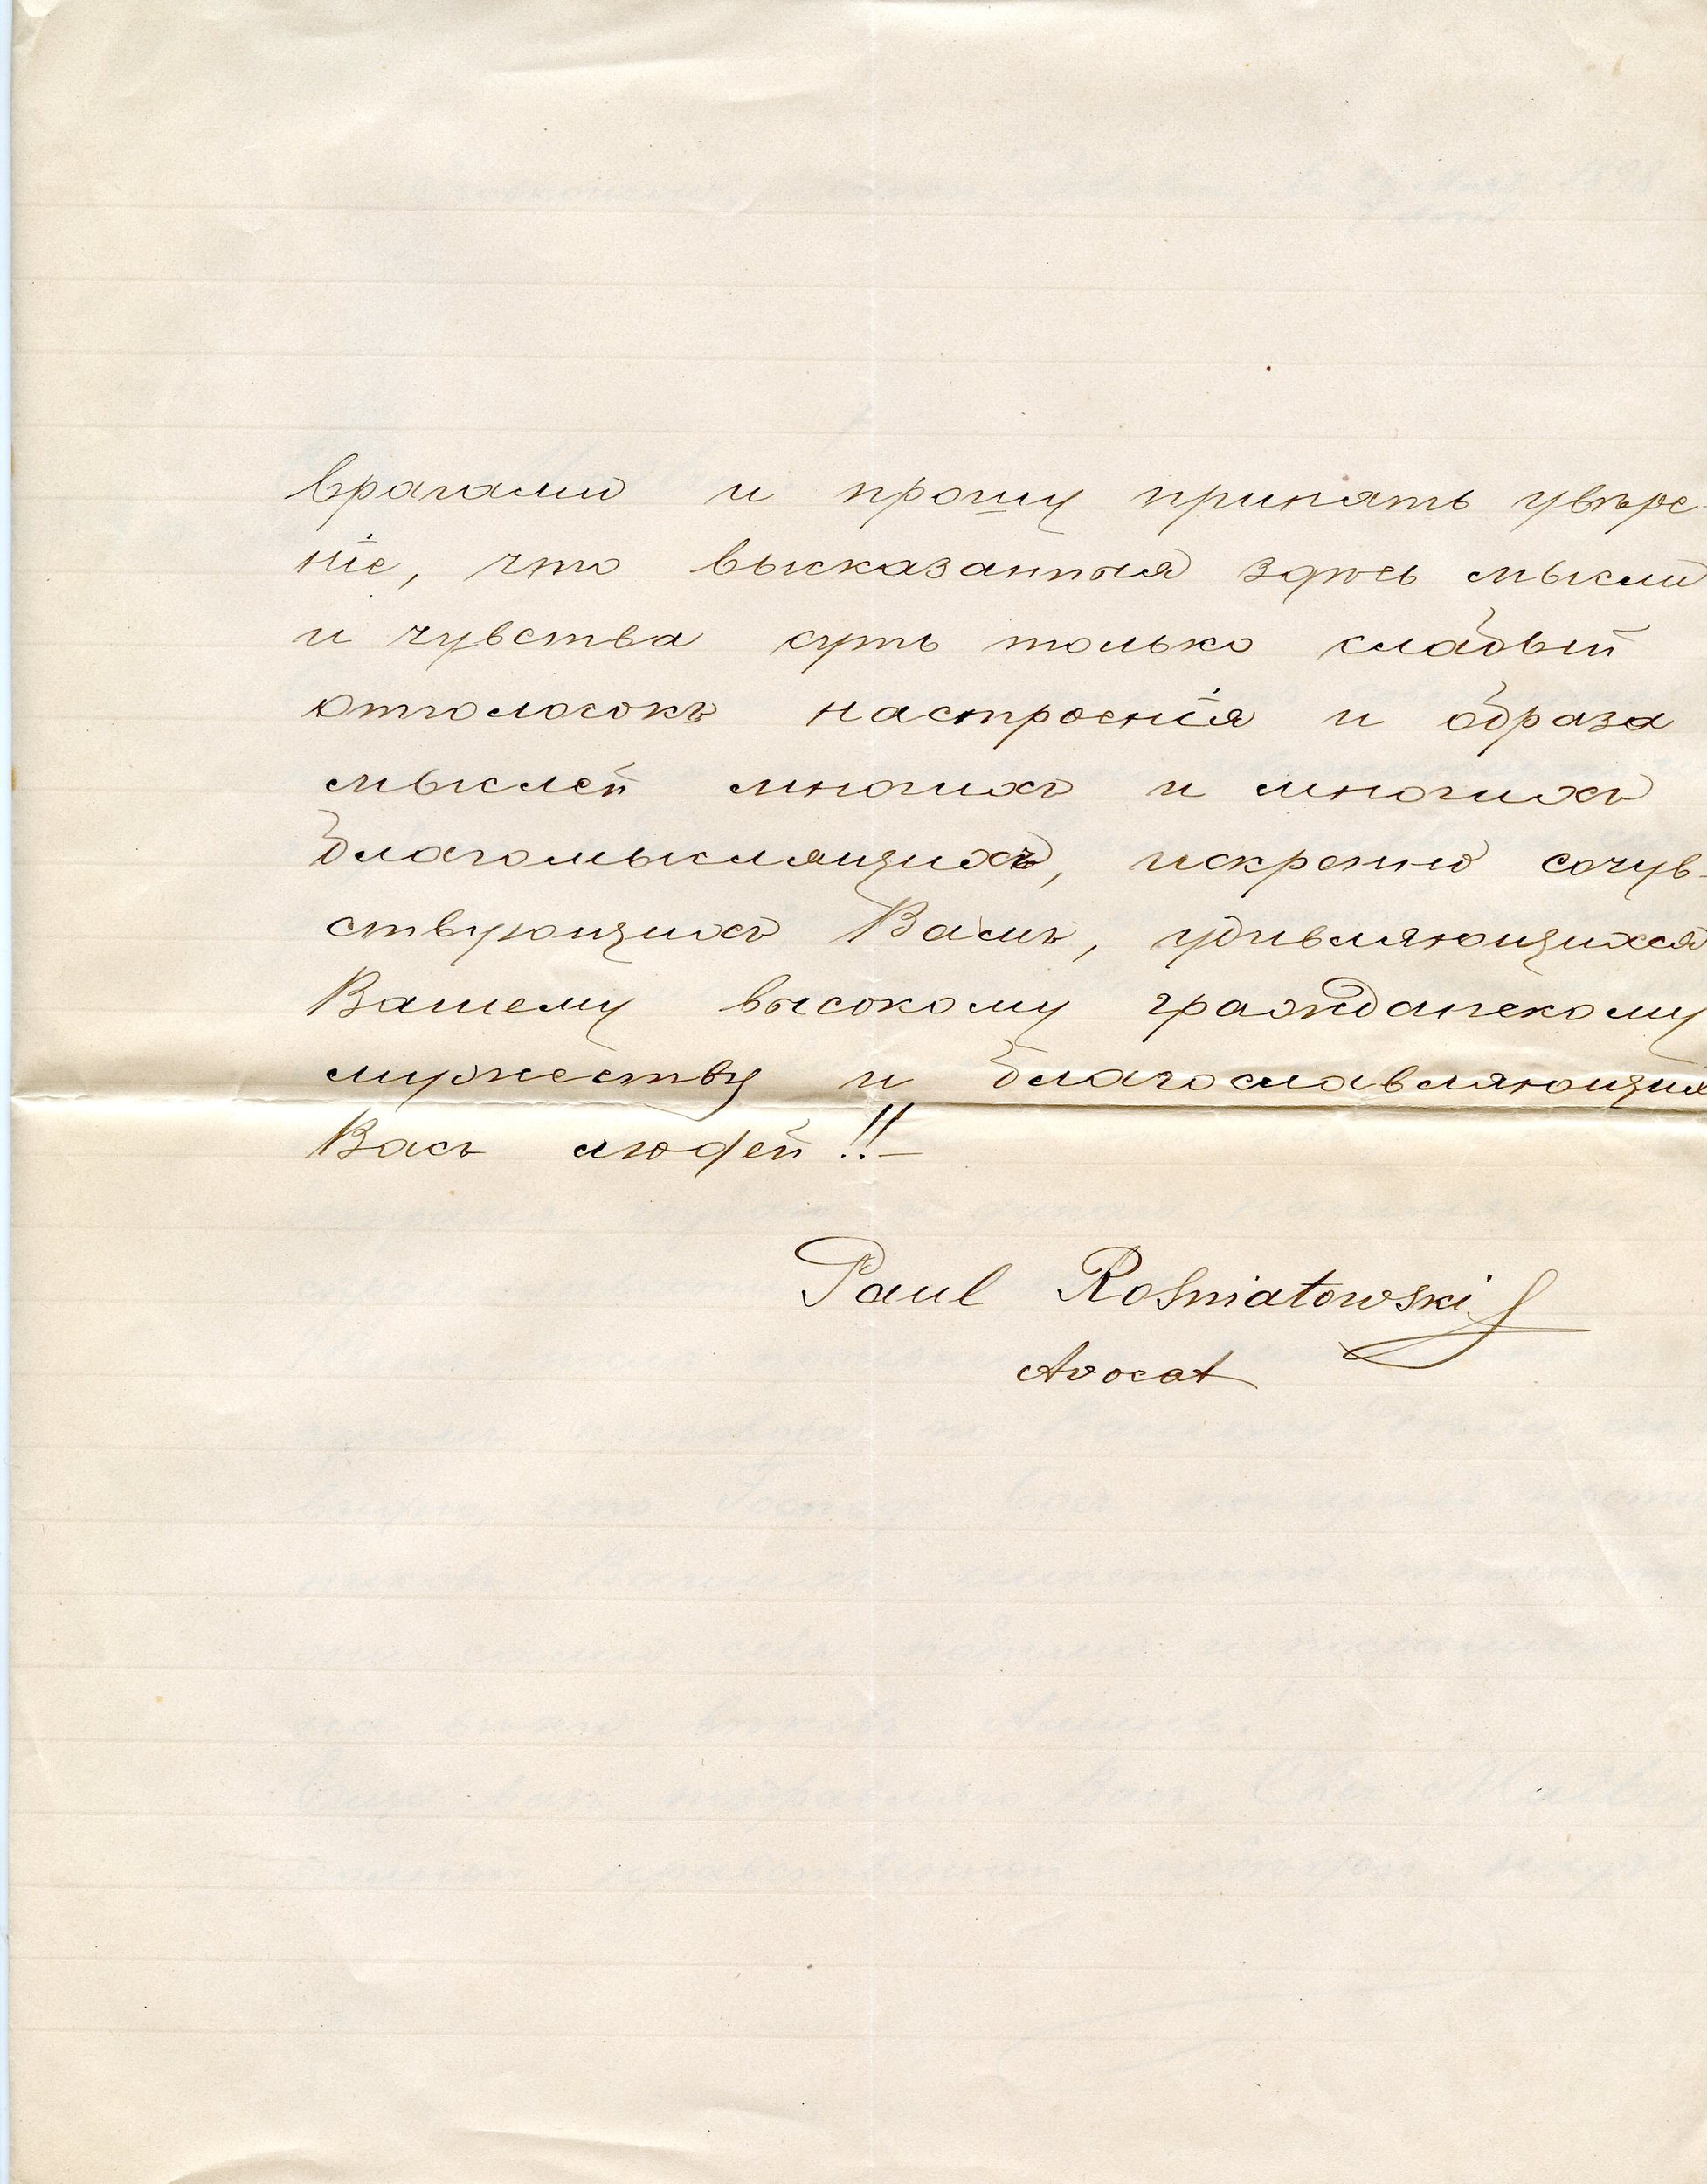 врагами и прошу принять увѣре-
ніе, что высказанныя здѣсь мысли
и чувства суть только слабый
отголосокъ настроенія и образа
мыслей многихъ и многихъ
благомыслящихъ, искренно сочув-
ствующихъ Вамъ, удивляющихся
Вашему высокому гражданскому
мужеству и благославляющихъ
Васъ людей!!—
Paul Rosniatowski
Avocat